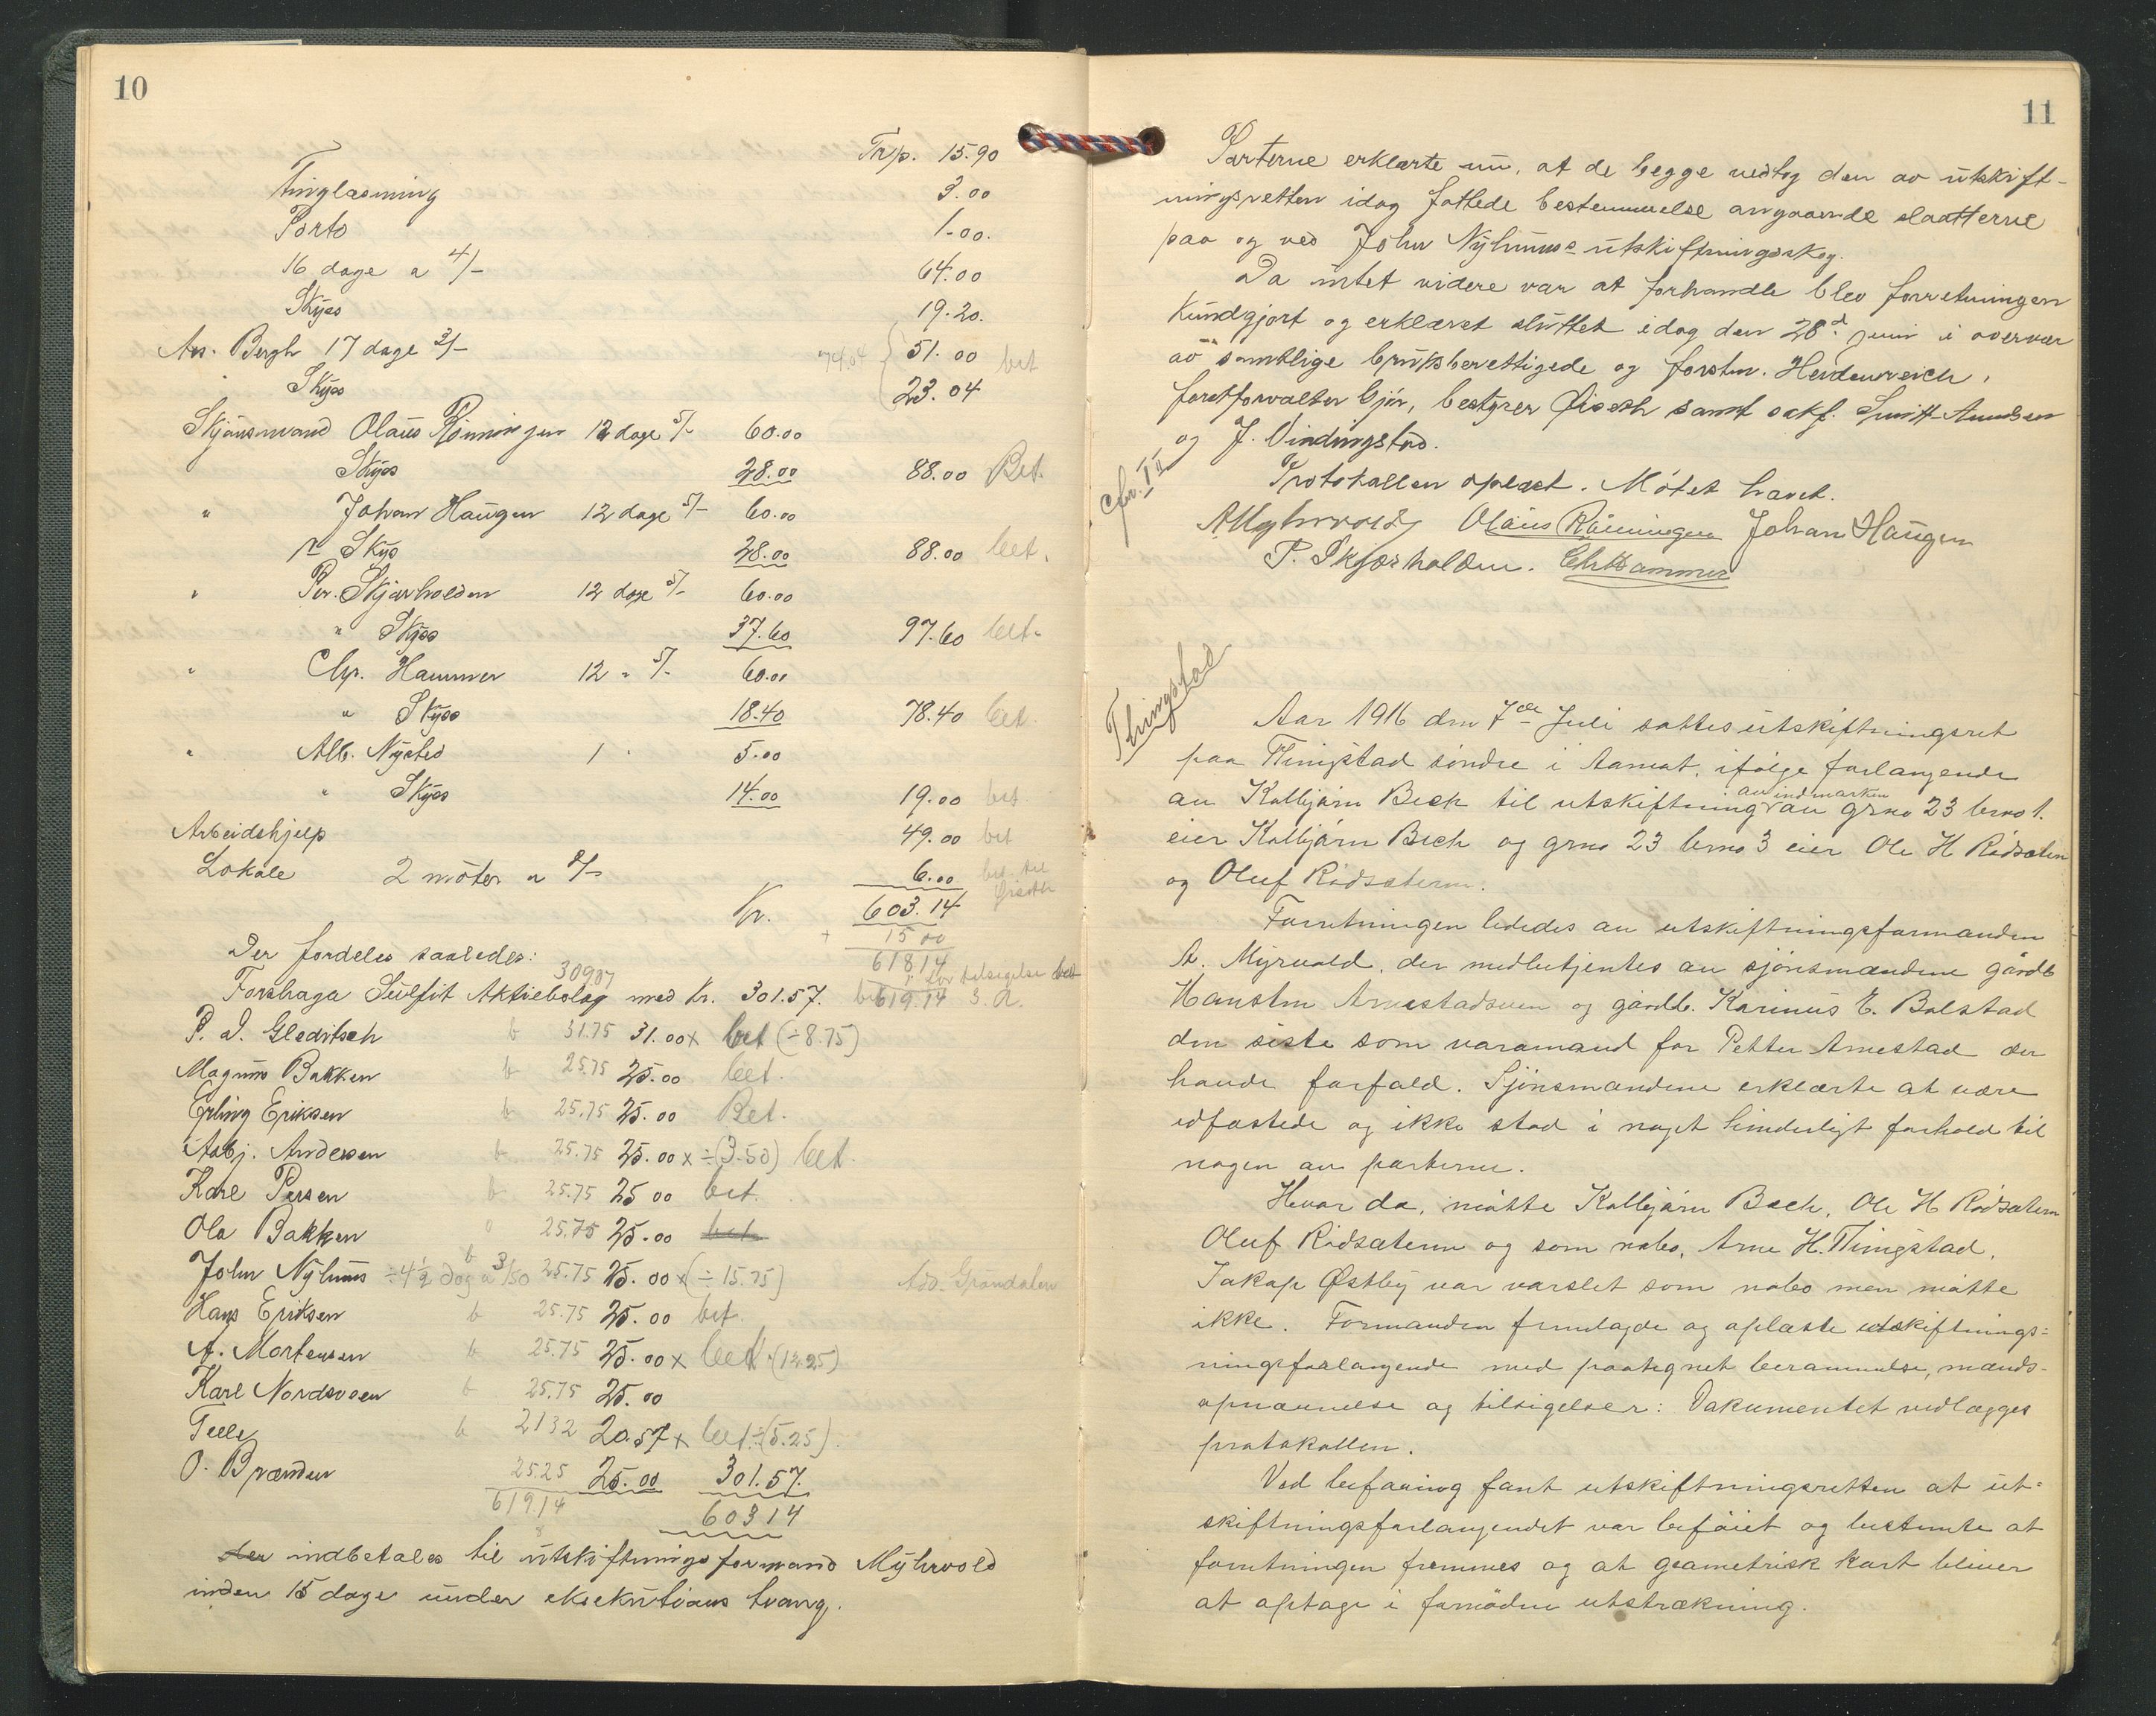 10
Trp. 15.90
Tinglæsning 3.00
Porto 1.00.
16 dage a 4/- 64.00
Skyss 19.20.
An. Bergh 17 dage 3/- 74.04 51.00 bet
Skyss 23.04
Skjønsmand Olaus Rönningen 12 dage 5/- 60.00
Skyss 28.00 88.00 Bet.
" Johan Haugen 12 dage 5/- 60.00
" Skys 28.00 88.00 bet.
" Per. Skjærholden 12 dage 5/- 60.00
" Skyss 37.60 97.60 bet.
" Chr. Hammer 12 " 5/- 60.00
" Skyss 18.40 78.40 bet.
" Alb. Nysted 1 " 5.00
" Skyss 14.00 19.00 bet
Arbeidshjelp 49.00 bet
Lokale 2 möter a 3/- 6.00 bet til
Øiseth
Kr. 603.14
+ 15 00
Der fordeles saaledes: 618.14
30907
Forshaga Sulfit Aktiebolag med Kr. 301.57. bet 619.14
P. J. Gleditsch b 31.75 31.00 x bet (÷8.75)
Magnus Bakken b 25.75 25.00 bet.
Erling Eriksen b 25.75 25.00 Bet.
Asbj. Andersen b 25.75 25.00 x ÷(3.50) bet.
Karl Persen b 25.75 25 00 bet.
Ola Bakken 0 25.75 25.00 bet
John Nyhuus ÷4½ dag a 3/50 25.75 25.00 x (÷15.75)
Hans Eriksen b 25.75 25.00 bet.
A. Mortensen b 25.75 25.00 x bet ÷(12.25)
Karl Nordsveen b 25.75 25.00
Telle b 2132 20.57 x bet ÷(5.25)
O. Brænden 25.25 25.00 301.57.
619.14 603 14
der indbetales til utskiftningsformand Myhrvold
inden 15 dage under eksekutions tvang.
11
Parterne erklærte nu, at de begge vedtog den av utskift-
ningsretten idag fattede bestemmelse angaaende slaatterne
paa og ved John Nyhuus utskiftningsskog.
Da intet videre var at forhandle blev forretningen
kundgjort og erklæret sluttet idag den 28d juni i overvær
av samtlige bruksberettigede og forstm. Heidenreich,
forstforvalter Gjör, bestyrer Øiseth samt sakf. Smitt Amundsen
og J. Vindingstad.
Protokollen oplæst. Mötet hævet.
AMyhrvold Olaus Rönningen Johan Haugen
P. Skjærholden. Chr Hammer
Thingstad
Aar 1916 den 7de Juli sattes utskiftningsret
paa Thingstad söndre i Aamot, ifölge forlangende
av Kolbjörn Bech til utskiftning av grno 23 brno 1.
av indmarken
eier Kolbjörn Bech og grno 23 brno 3 eier Ole H Rödsæteren
og Oluf Rödsæteren.
Forretningen lededes av utskiftningsformanden
A. Myrvold, der medbetjentes av sjönsmændene gårdb
Hansten Arnestadsveen og gårdb. Karinus E. Bolstad
den siste som varamand for Petter Arnestad der
havde forfald. Sjönsmændene erklærte at være
edfæstede og ikke stod i noget hinderligt forhold til
nogen av parterne.
Hvor da, mötte Kolbjörn Bech, Ole H Rödsæteren
Oluf Rödsæteren og som nabo, Arne H. Thingstad.
Jakop Østby var varslet som nabo men mötte
ikke. Formanden fremlagde og oplæste utskiftnings-
ningsforlangende med paategnet berammelse, mands-
opnævnelse og tilsigelser: Dokumentet vedlægges
protokollen.
Ved befaring fant utskiftningsretten at ut-
skiftningsforlangendet var beföiet og bestemte at
forretningen fremmes og at geometrisk kart bliver
at optage i fornöden utstrækning.